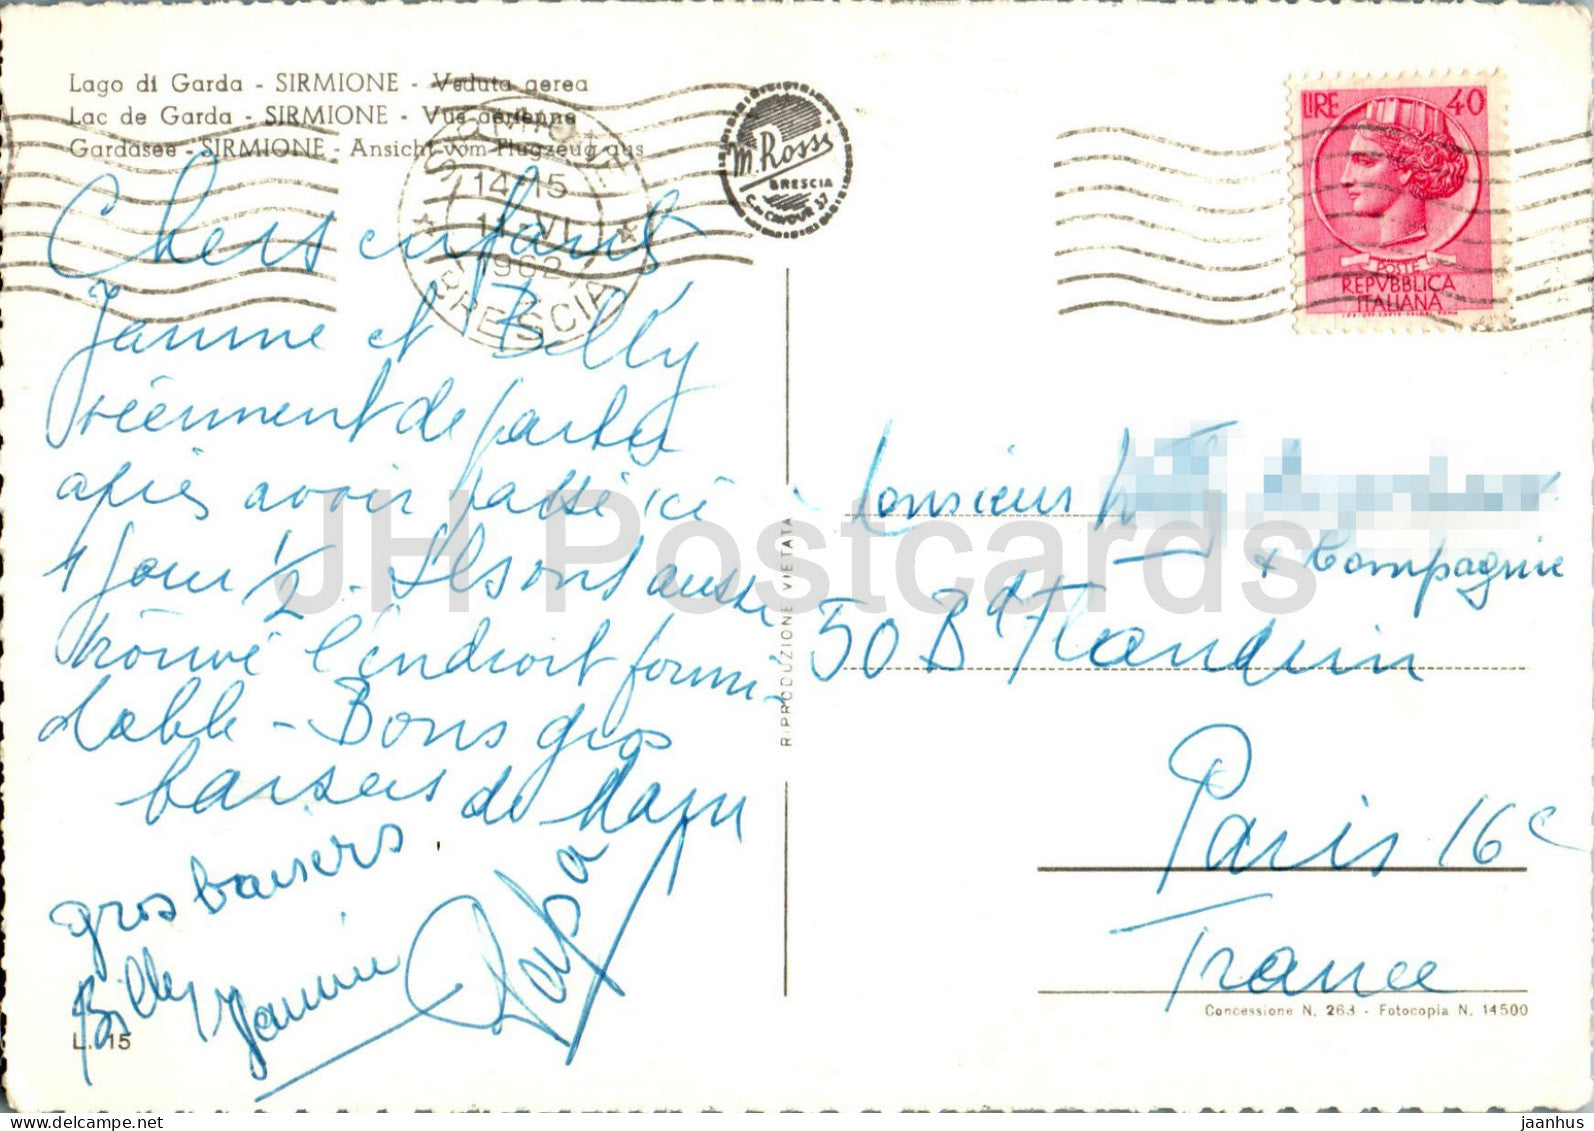 Lago di Garda - SIRMIONE - Veduta aerea
Lac de Garda - SIRMIONE - Vue aérienne
Gardasee - SIRMIONE - Ansicht vom Flugzeug aus
SIRMIONE
14-15
VI
1962
BRESCIA
M. Rossi
BRESCIA
C.so CAVOUR 37
LIRE 40
POSTE
REPVBBLICA
ITALIANA
Chers enfants
Janine et Billy
viennent de partir
après avoir passé ici
1 jour 1/2 - Ils ont aussi
trouvé l'endroit formi-
dable - Bons gros
baisers de Mam
Papa
gros baisers
Billy Jannie
L. 15
RIPRODUZIONE VIETATA
Monsieur
& Compagnie
50 Bd Flandrin
Paris 16e
France
Concessione N. 263 - Fotocopia N. 14500
JH Postcards
delcampe.net
jaanhus